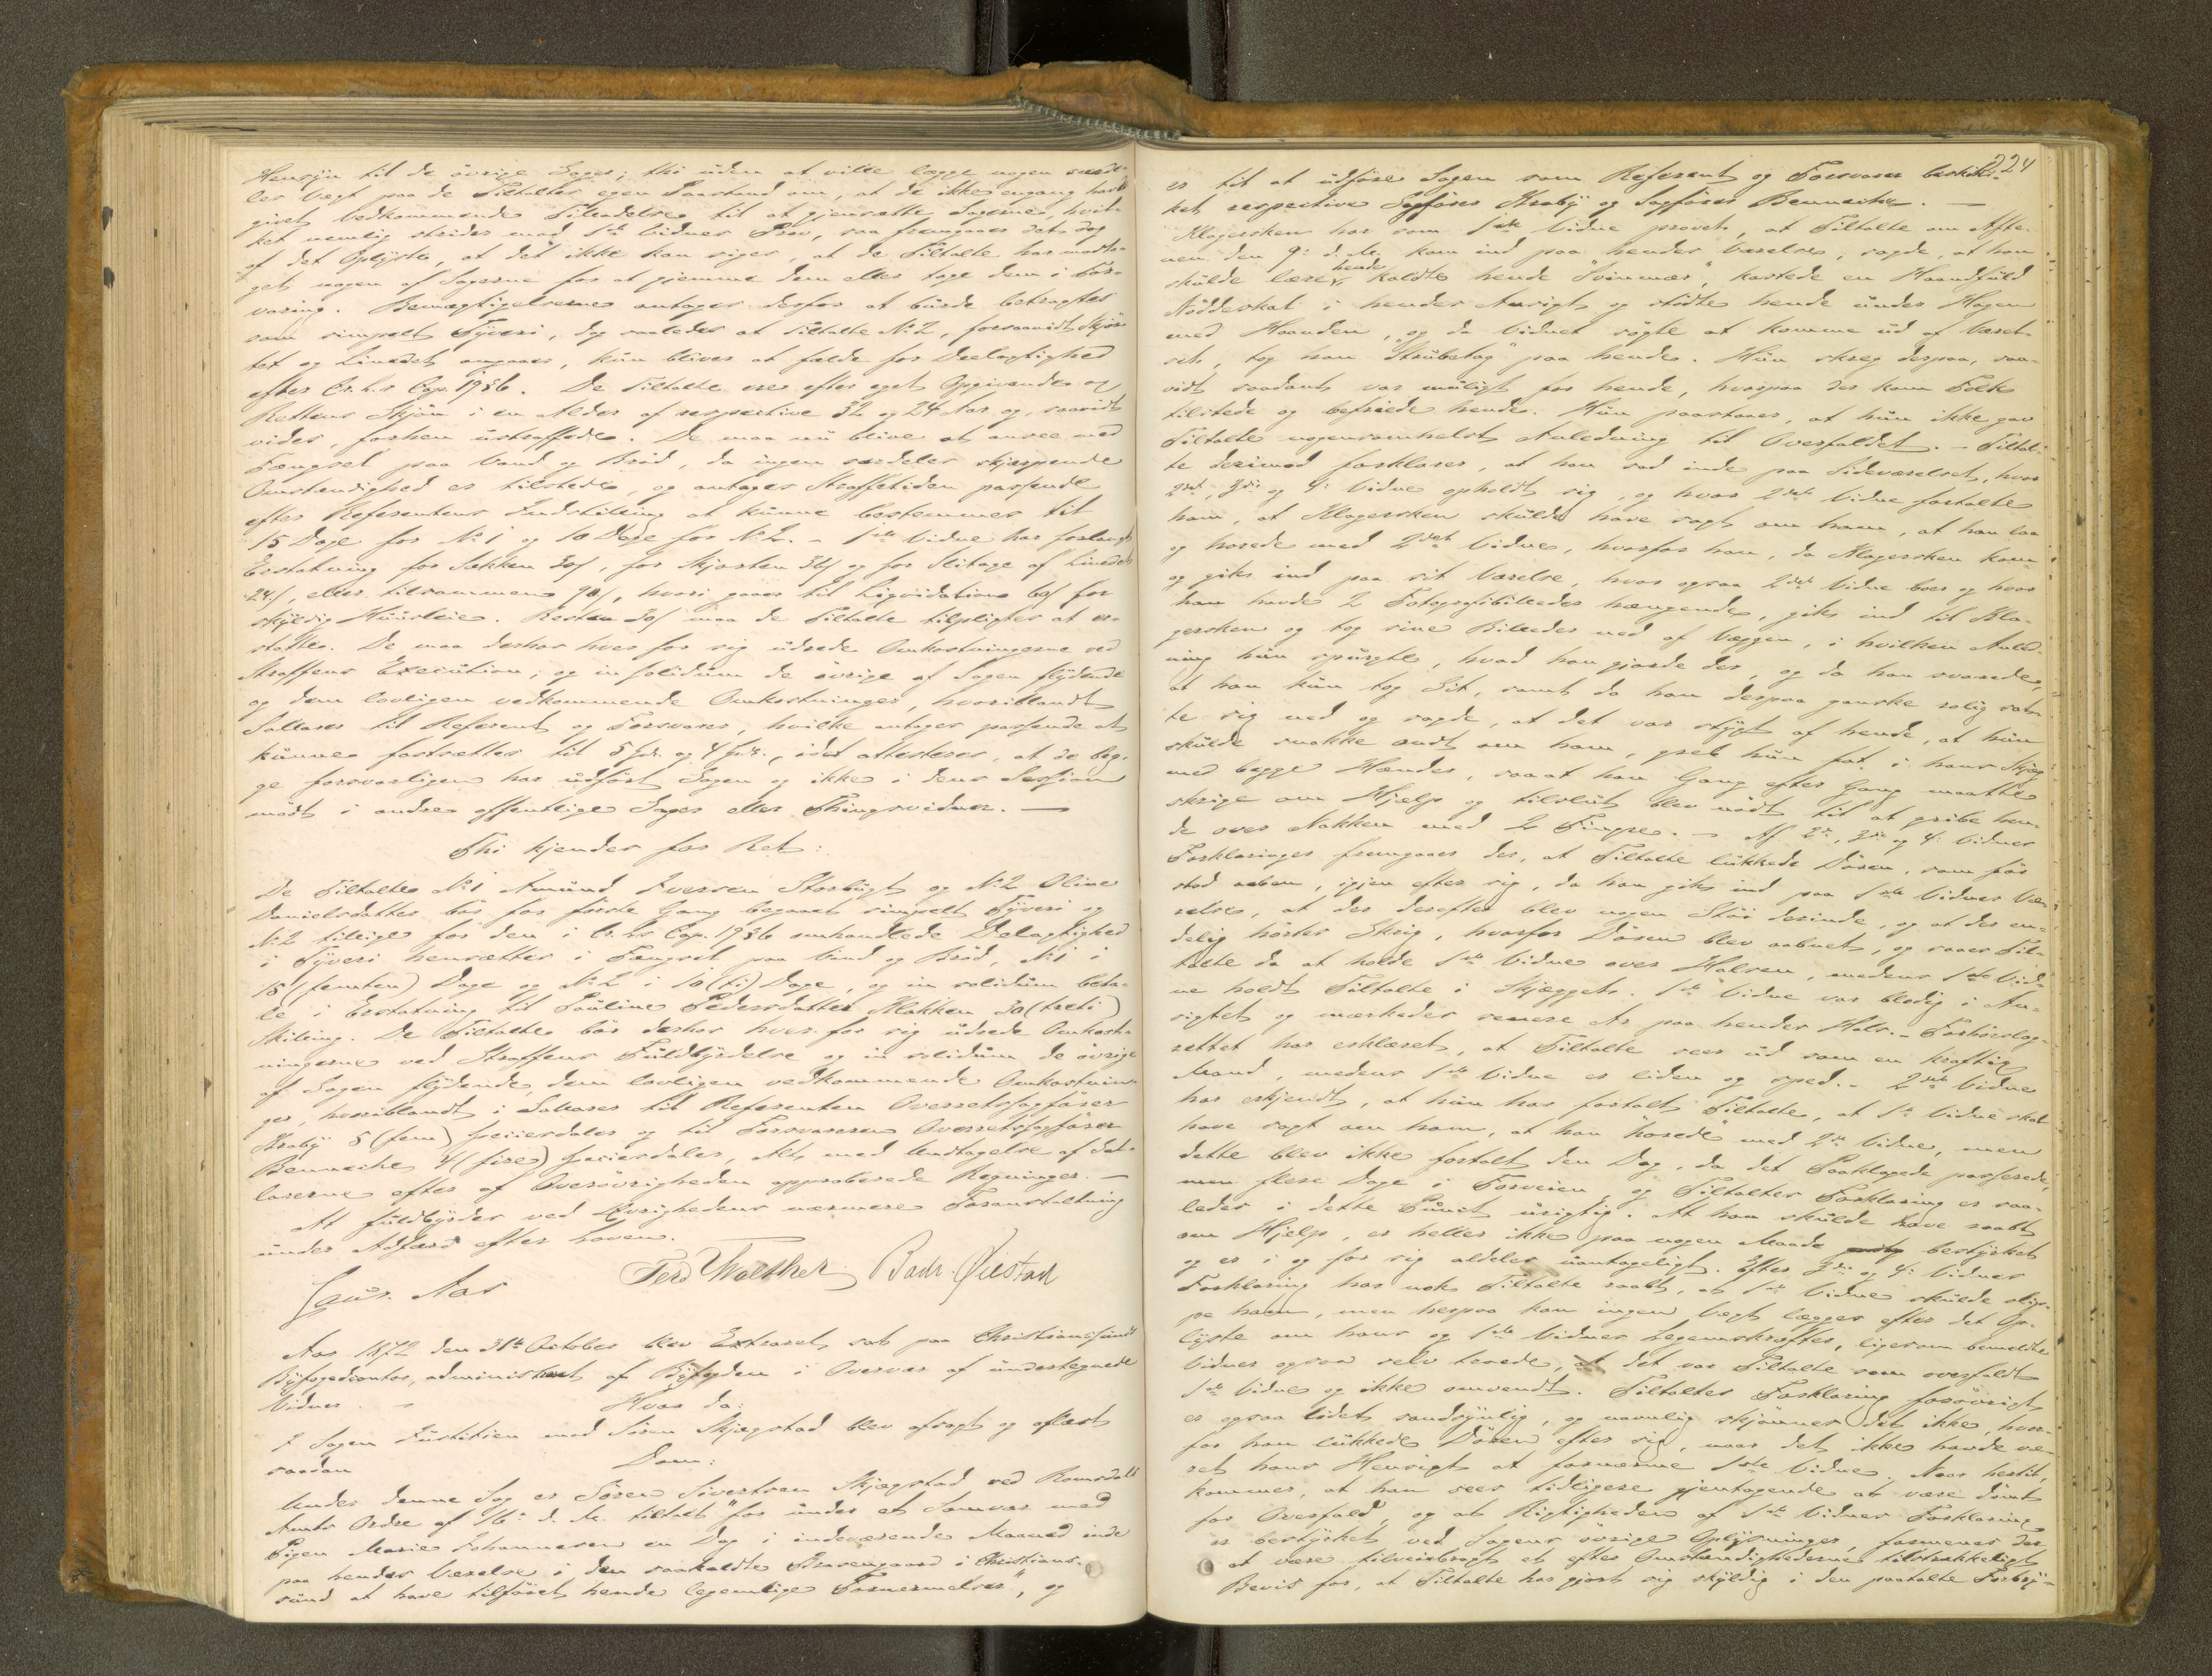 Hensyn til de övrige Sager, thi uden at ville lægge nogen særde-
les Vægt paa de Tiltaltes egen Paastand om, at de ikke engang have
givet Vedkommende Tilladelse til at gjensætte Sagerne, hvil-
ket nemlig strider mod 1ste Vidnes Prov, saa fremgaaer det dog
af det Oplyste, at det ikke kan siges, at de Tiltalte har modta-
get nogen af Sagerne for at gjemme dem eller tage dem i For-
varing. Bemægtigelserne antages derfor at burde betragtes
som simpelt Tyveri, dog saaledes at Tiltalte No 2, forsaavidt Skjör-
tet og Linedet angaaer, kun bliver at fælde for Deelagtighed
efter Cr. L.s Cap. 19 § 6. De Tiltalte ere efter eget Opgivende og
Rettens Skjön i en Alder af respective 32 og 24 Aar og, saavidt
vides, forhen ustraffede. De maa nu blive at ansee med
Fængsel paa Vand og Bröd, da ingen særdeles skjærpende
Omstændighed er tilstede, og antages Straffetiden passende
efter Referentens Indstilling at kunne bestemmes til
15 Dage for No 1 og 10 Dage for No 2. – 1ste Vidne har forlangt
Erstatning for Sækken 30 s, for Skjorten 36 s og for Slitage af Linedet
24 s, eller tilsammen 90 s, hvori gaaer til Liqvidation 60 s for
skyldig Huusleie. Resten 30 s maa de Tiltalte tilpligtes at er-
statte. De maa derhos hver for sig udrede Omkostningerne ved
Straffens Execution, og in solidum de övrige af Sagen flydende
og dem lovligen vedkommende Omkostninger, hvoriblandt
Sallarer til Referent og Forsvarer, hvilke antages passende at
kunne fastsættes til 5 Spd. og 4 Spd., idet attesteres, at de beg-
ge forsvarligen har udfört Sagen og ikke i dens Session
mödt i andre offentlige Sager eller Thingsvidner. —
Thi kjendes for Ret:
De Tiltalte No 1 Amund Iversen Storbugt og No 2 Oline
Danielsdatter bör for förste Gang begaaet simpelt Tyveri og
No 2 tillige for den i Cr. L.s Cap. 19 § 6 omhandlede Delagtighed
i Tyveri hensættes i Fængsel paa Vand og Bröd, No 1 i
15 (femten) Dage og No 2 i 10 (ti) Dage, og in solidum beta-
le i Erstatning til Pauline Pedersdatter Hakken 30 (treti)
Skilling. De Tiltalte bör derhos hver for sig udrede Omkost-
ningerne ved Straffens Fuldbyrdelse og in solidum de övrige
af Sagen flydende, dem lovligen vedkommende Omkostnin-
ger, hvoriblandt i Sallarer til Referenten Overretssagförer
Kraby 5 (fem) Speciedaler og til Forsvareren Overretssagförer
Benneche 4 (fire) Speciedaler, Alt med Undtagelse af Sal-
larerne efter af Overövrigheden approberede Regninger. —
At fuldbyrdes ved Övrighedens nærmere Foranstaltning
under Adfærd efter Loven.
Ferd Walther Bach. Øiestad
Laur. Aas
Aar 1872 den 31te October blev Extraret sat paa Christianssunds
Byfogedcontor, administreret af Byfogden i Overvær af undertegnede
Vidner. – Hvor da:
I Sagen Justitien mod Sören Skjægstad blev afsagt og aflæst
saadan Dom:
Under denne Sag er Sören Sivertsen Skjægstad ved Romsdals
Amts Ordre af 16de d. M. tiltalt "for under et Samvær med
Pigen Marie Johannesen en Dag i indeværende Maaned inde
paa hendes Værelse i den saakaldte Brasengaard i Christians-
sund at have tilföiet hende legemlige Fornærmelser", og
224
er til at udföre Sagen som Referent og Forsvarer beskik-
ket respective Sagförer Kraby og Sagförer Bennecke. —
Klagersken har som 1ste Vidne provet, at Tiltalte om Afte-
nen den 9: d. M. kom ind paa hendes Værelse, sagde, at han
skulde lære hende, kaldte hende "Svinmær", kastede en Haandfuld
Nöddeskal i hendes Ansigt og stödte hende under Hagen
med Haanden, og da Vidnet sögte at komme ud af Værel-
set, tog han "Strubetag" paa hende. Hun skreg derpaa, saa-
vidt saadant var muligt for hende, hvorpaa der kom Folk
tilstede og befriede hende. Hun paastaaer, at hun ikke gav
Tiltalte nogensomhelst Anledning til Overfaldet. – Tiltal-
te derimod forklarer, at han sad inde paa Sideværelset, hvor
2det, 3die og 4: Vidne opholdt sig, og hvor 2det Vidne fortalte
ham, at Klagersken skulde have sagt om ham, at han laa
og horede med 2det Vidne, hvorfor han, da Klagersken kom
og gik ind paa sit Værelse, hvor ogsaa 2det Vidne boer og hvor
han havde 2 Fotografibilleder hængende, gik ind til Kla-
gersken og tog sine Billeder ned af Væggen, i hvilken Anled-
ning hun spurgte, hvad han gjorde der, og da han svarede,
at han kun tog Sit, samt da han derpaa ganske rolig sat-
te sig ned og sagde, at det var stygt af hende, at hun
skulde snakke ondt om ham, greb hun fat i hans Skjæg
med begge Hænder, saaat han Gang efter Gang maatte
skrige om Hjælp og tilslut blev nödt til at gribe hen-
de over Nakken med 2 Fingre. – Af 2det, 3die og 4: Vidnes
Forklaringer fremgaaer der, at Tiltalte lukkede Dören, som för
stod aaben, igjen efter sig, da han gik ind paa 1ste Vidnes Væ-
relse, at der derefter blev nogen Stöi derinde, og at der en-
delig hörtes Skrig, hvorfor Dören blev aabnet, og saaes Til-
talte da at holde 1ste Vidne over Halsen, medens 1ste Vid-
ne holdt Tiltalte i Skjægget. 1ste Vidne var blodig i An-
sigtet og mærkedes senere Ar paa hendes Hals. – Forhörslag-
rettet har erklæret, at Tiltalte seer ud som en kraftig
Mand, medens 1ste Vidne er liden og sped. – 2det Vidne
har erkjendt, at hun har fortalt Tiltalte, at 1ste Vidne skal
have sagt om ham, at han "horede" med 2det Vidne, men
dette blev ikke fortalt den Dag, da det Paaklagede passerede,
men flere Dage i Forveien og Tiltaltes Forklaring er saa-
ledes i dette Punct urigtig. At han skulde have raabt
om Hjælp, er heller ikke paa nogen Maade bestyrket
og er i og for sig aldeles uantageligt. Efter 3die og 4: Vidnes
Forklaring har nok Tiltalte raabt, at 1ste Vidne skulde slip-
pe ham, men herpaa kan ingen Vægt lægges efter det Op-
lyste om hans og 1ste Vidnes Legemskræfter, ligesom bemeldte
Vidner ogsaa selv troede, at det var Tiltalte som overfaldt
1ste Vidne og ikke omvendt. Tiltaltes Forklaring forövrigt
er ogsaa lidet sandsynlig, og navnlig skjönnes det ikke, hvor-
for han lukkede Dören efter sig, naar det ikke havde væ-
ret hans Hensigt at fornærme 1ste Vidne. Naar hertil
kommer, at han sees tidligere gjentagende at være dömt
for Overfald, og at Rigtigheden af 1ste Vidnes Forklaring
er bestyrket ved Sagens övrige Oplysninger, formenes der
at være tilveiebragt et efter Omstændighederne tilstrækkeligt
Bevis for, at Tiltalte har gjort sig skyldig i den paatalte Forbry-